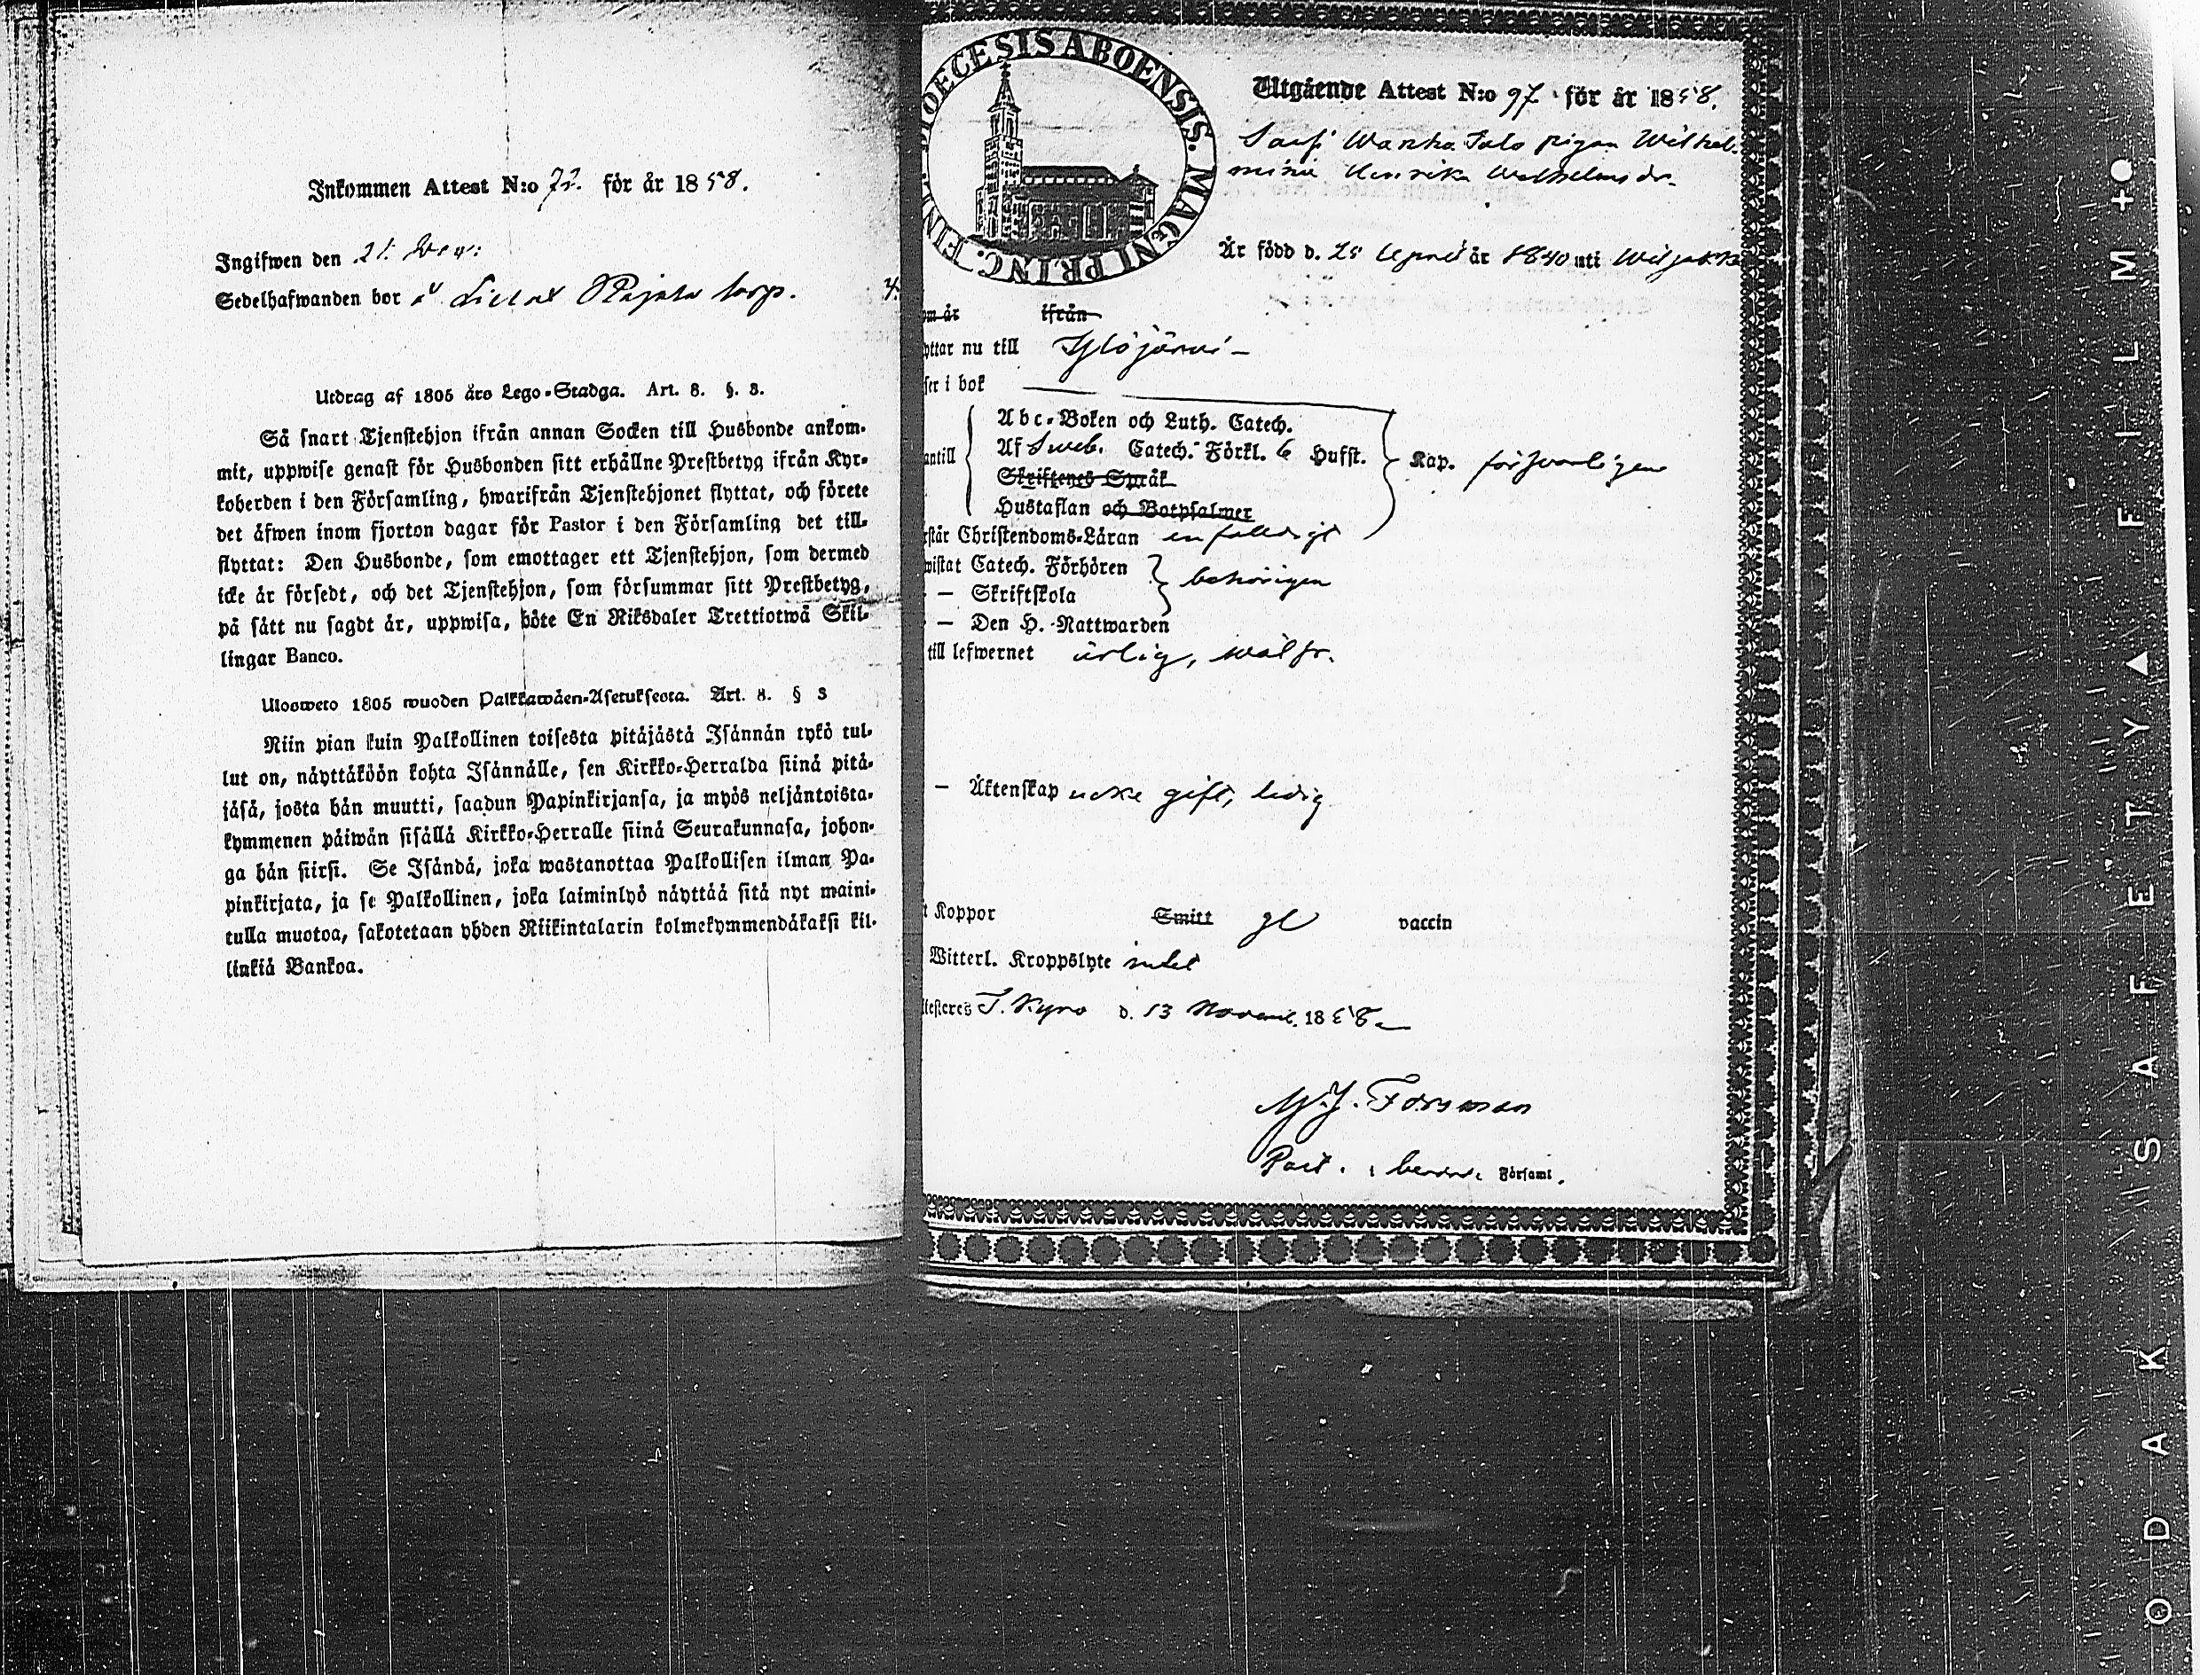 Inkommen Attest N:o 72. för år 1858.
Ingifwen den 21.
Sedelhafwanden bor å torp.
Utdrag af 1805 års Lego-Stadga. Art. 8. §. 3.
Så snart Tjenstehjon ifrån annan Socken till Husbonde ankom-
mit, uppwise genast för Husbonden sitt erhållne Prestbetyg ifrån Kyr-
koherden i den Församling, hwarifrån Tjenstehjonet flyttat, och förete
det äfwen inom fjorton dagar för Pastor i den Församling det till-
flyttat: Den Husbonde, som emottager ett Tjenstehjon, som dermed
icke är försedt, och det Tjenstehjon, som försummar sitt Prestbetyg,
på sätt nu sagdt är, uppwisa, böte En Riksdaler Trettiotwå Skil-
lingar Banco.
Ulosweto 1805 wuoden Palkkawäen-Asetuksesta. Art. 8. § 3
Niin pian kuin Palkollinen toisesta pitäjästä Isännän tykö tul-
lut on, näyttäköön kohta Isännälle, sen Kirkko-Herralda siinä pitä-
jäsä, josta hän muutti, saadun Papinkirjansa, ja myös neljäntoista-
kymmenen päiwän sisällä Kirkko-Herralle siinä Seurakunnasa, johon-
ga hän siirsi. Se Isändä, joka wastanottaa Palkollisen ilman Pa-
pinkirjata, ja se Palkollinen, joka laiminlyö näyttää sitä nyt maini-
tulla muotoa, sakotetaan yhden Riikintalarin kolmekymmendäkaksi kil-
linkiä Bankoa.
DIOECESIS ABOENSIS. MAGNI PRINC. FINL.
Utgående Attest N:o 97. för år 1858.
Wanha Talo pigan Wilhel-
mina Henrika Wilhelmsdr.
Är född d. 25 April år 1840 uti
om är ifrån
yttar nu till Ylöjärvi
ser i bok
Abc-Boken och Luth. Catech.
antill Af Sweb. Catech. Förkl. & Hufst. Kap. försvarligen
Skriftenes Språk
Hustaflan och Botpsalmer
rstår Christendoms-Läran enfaldigt
wistat Catech. Förhören behörigen
— Skriftskola
— Den H. Nattwarden
till lefwernet ärlig, wälfr.
— Äktenskap icke gift, ledig
t Koppor Smitt gl vaccin
Witterl. Kroppslyte intet
ttesteres T. Kyro d. 13 Novemb. 1858
Forsman
Past. i Församl.
KODAK SAFETY FILM